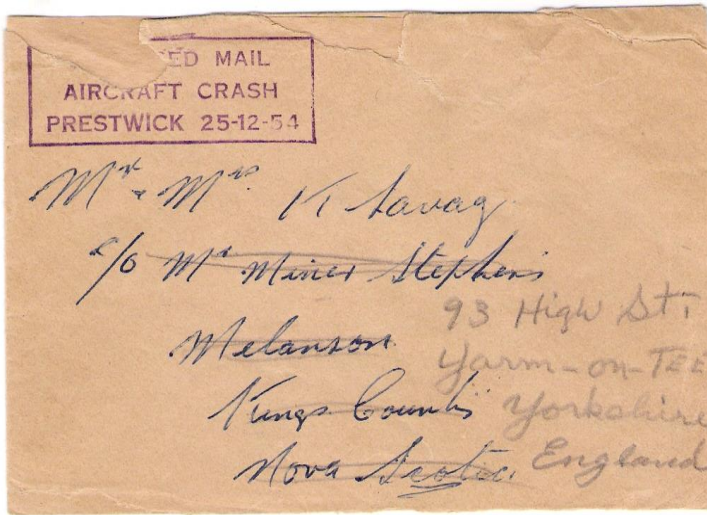 ED MAIL
AIRCRAFT CRASH
PRESTWICK 25-12-54
Mr & Mrs K Savag
c/o Mr Miner Stephens
Melanson
Kings County
Nova Scotia
93 High St.
Yarm-on-TEE
Yorkshire
England